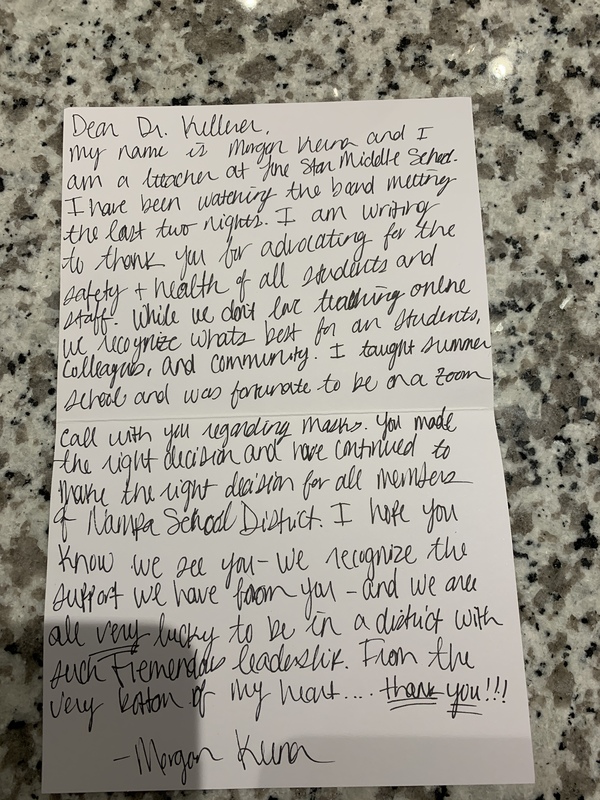 Dear Dr. Kellerer,
My name is Morgan and I
am a teacher at Lone Star Middle School.
I have been watching the board meeting
the last two nights. I am writing
to thank you for advocating for the
safety + health of all students and
staff. While we don't love teaching online
we recognize whats best for our students,
colleagues, and community. I taught summer
school and was fortunate to be on a zoom
call with you regarding masks. You made
the right decision and have continued to
make the right decision for all members
of Nampa School District. I hope you
know we see you - we recognize the
support we have from you - and we are
all very lucky to be in a district with
such tremendous leadership. From the
very bottom of my heart.... thank you!!!
- Morgan